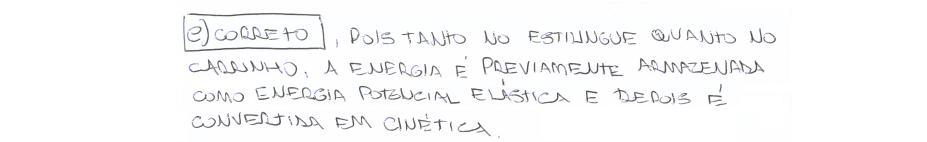 e) CORRETO, POIS TANTO NO ESTILINGUE QUANTO NO
CARRINHO, A ENERGIA É PREVIAMENTE ARMAZENADA
COMO ENERGIA POTENCIAL ELÁSTICA E DEPOIS É
CONVERTIDA EM CINÉTICA.